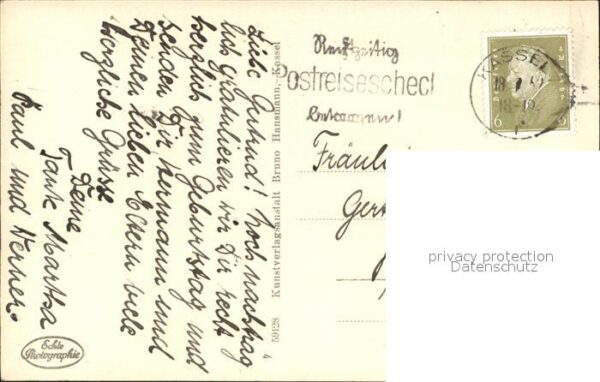 Liebe Gertrud! Noch nachträg
lich gratulieren wir Dir recht
herzlich zum Geburtstag und
senden Dir Hermann und
Deinen lieben Eltern viele
herzliche Grüsse
Deine
Tante Martha
Paul und Werner.
Echte
Photographie
4
59128 Kunstverlagsanstalt Bruno Hansmann, Kassel
Rechtzeitig
Postreisescheck
besorgen!
KASSEL
18
6 6
Fräulei
Ger
privacy protection
Datenschutz